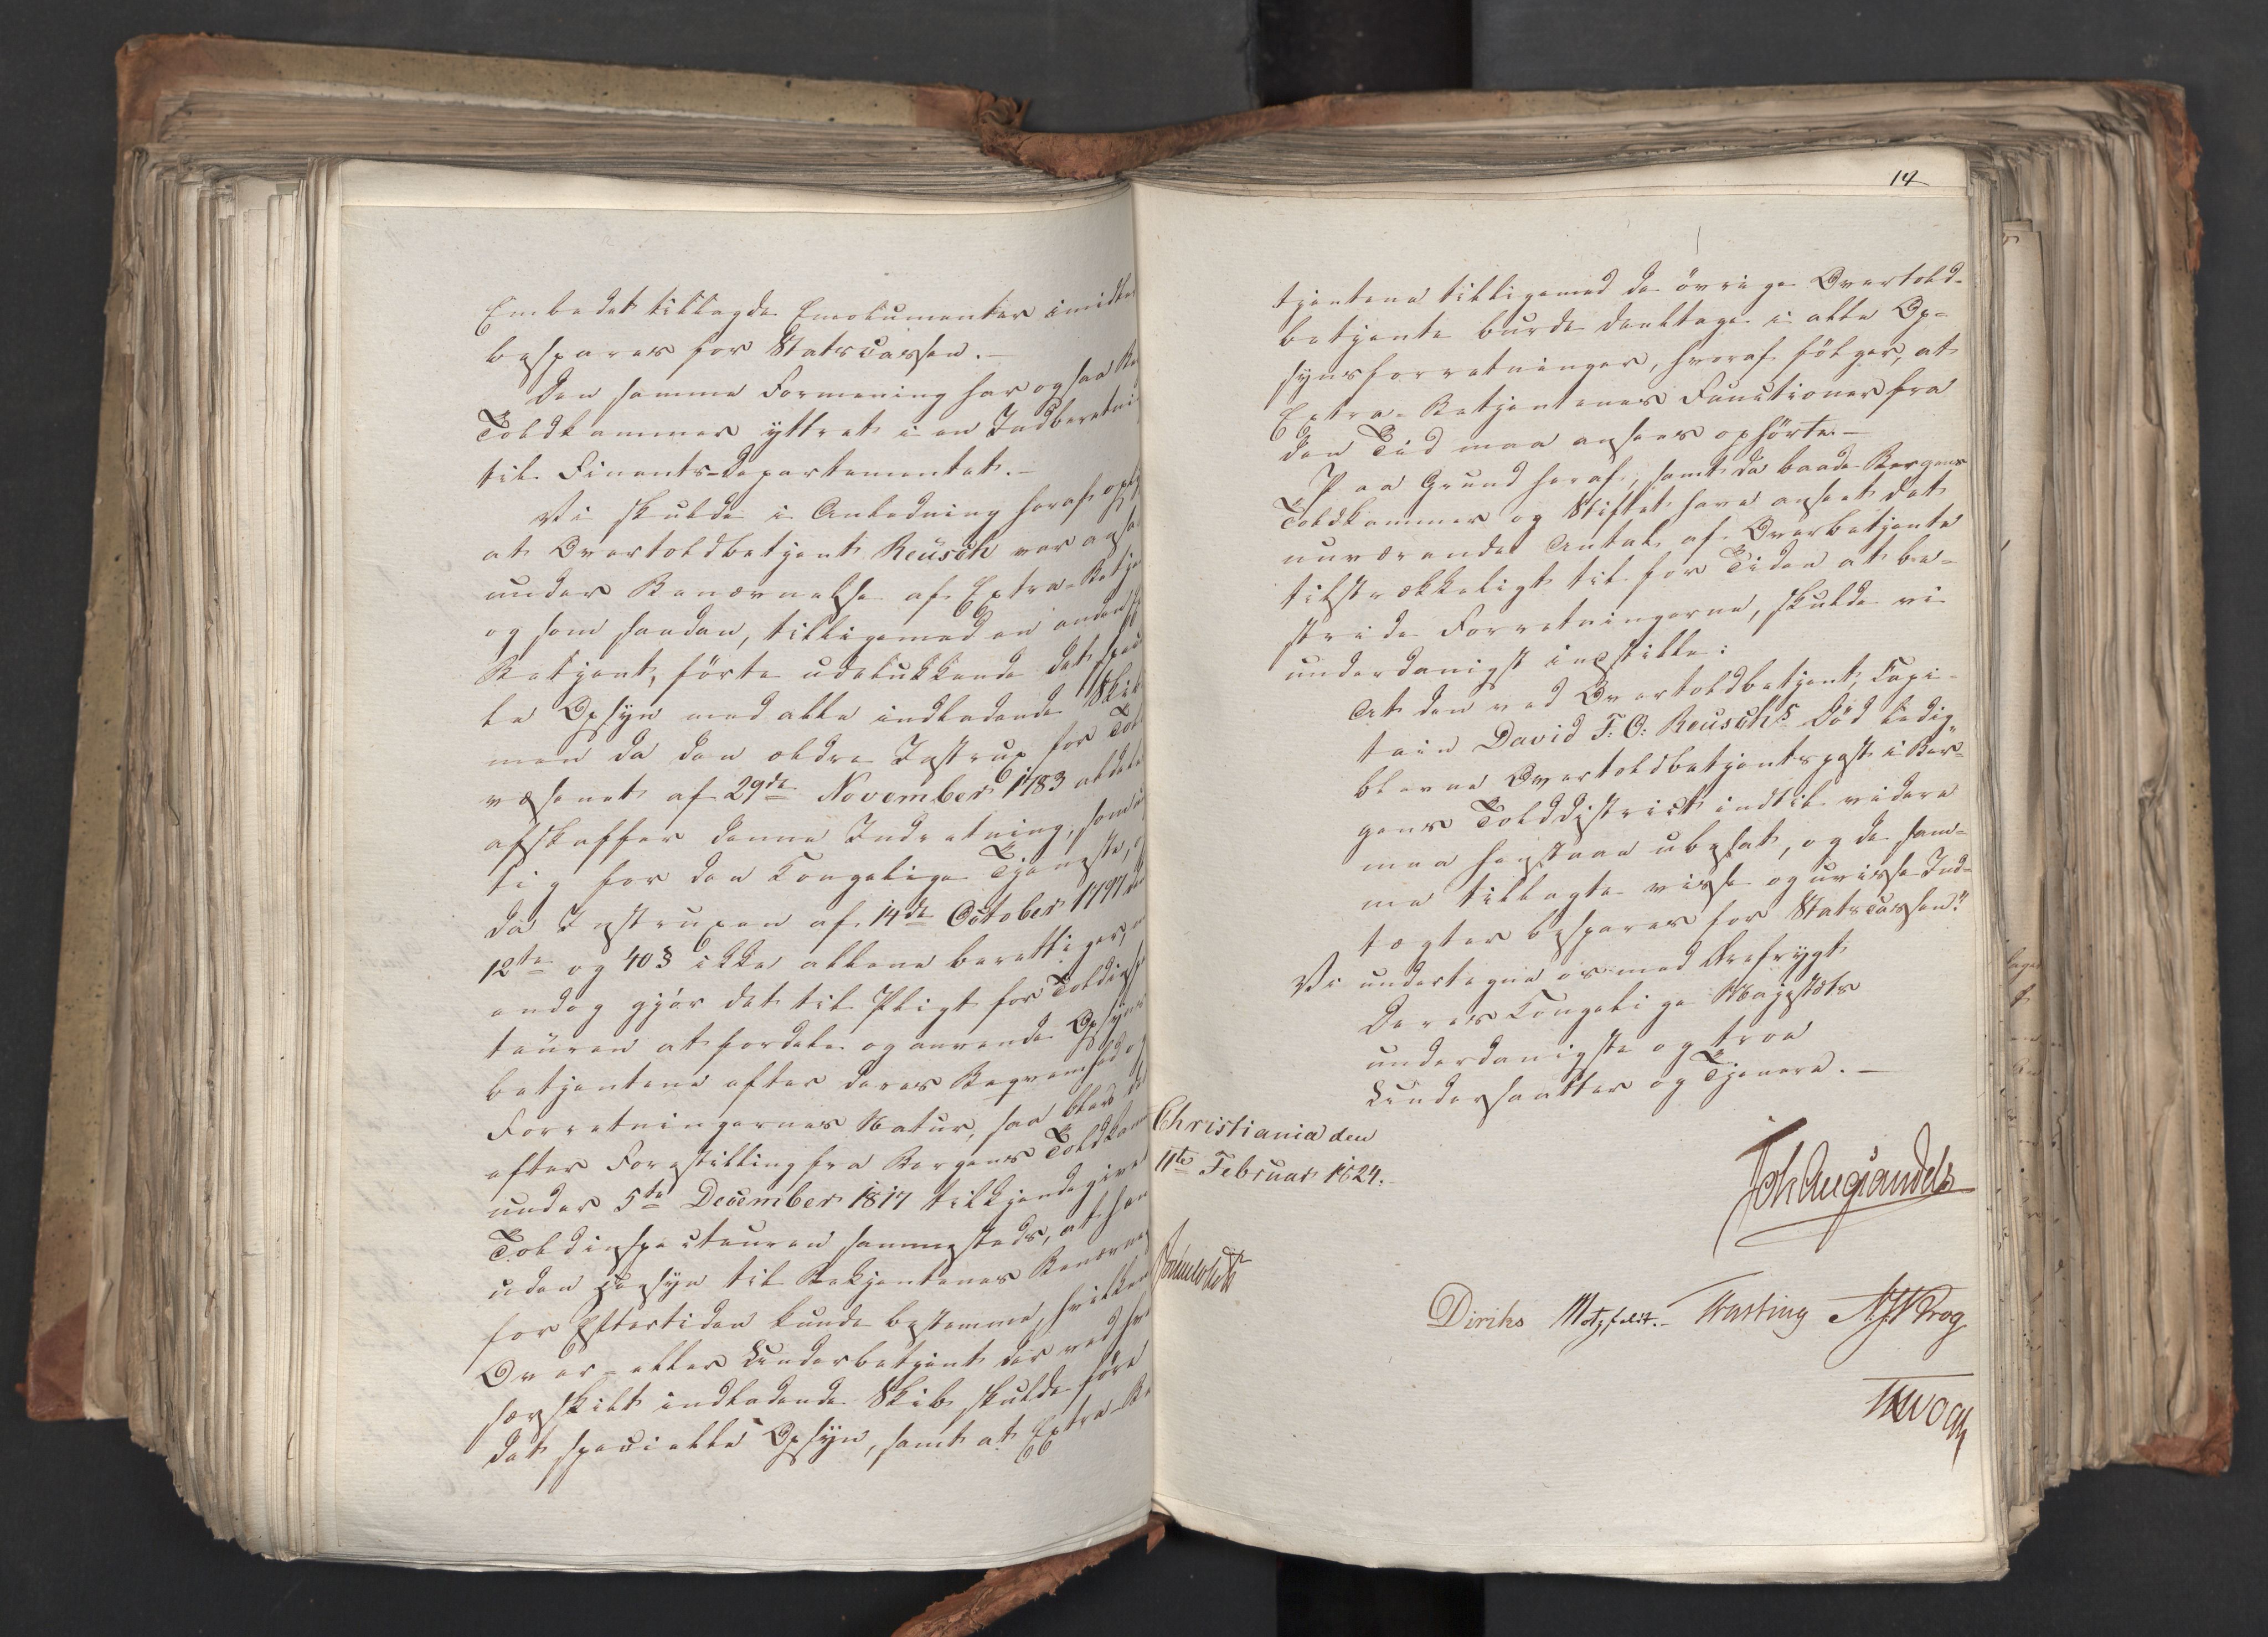 Embedet tillagde Emolumenter imidler
besparer for Statscassen.-
Den samme Formening har ogsaa Ber
Toldkammer yttret i en Indberetni
til Finants-Departementet.-
Vi skulde i Anledning heraf oply
at Overtoldbetjent Reusch var ansa
under Benævnelse af Extra-Betje
og som saadan, tilligemed en anden
Betjent, førte udelukkende det speci
le Opsyn med alle indladende Skib
men da den ældre Instrux for Tol
væsenet af 29de November 1783 aldele
afskaffer denne Indretning, som
lig for den Kongelige Tjeneste,
da Instruxen af 14de October 1797 de
12te og 40 § ikke allene berettiger,
endog gjør det til Pligt for Toldinspe
teuren at fordele og anvende Opsyns
betjentene efter deres Beqvemhed og
Forretningernes Natur, saa blev de
efter Forestilling fra Bergens Toldkam
under 5te December 1817 tilkjendegivet
Toldinspecteuren sammesteds, at han
uden Hensyn til Betjentenes Benævnel
for Eftertiden kunde bestemme, hvilken
Over- eller Underbetjent der ved hve
særskilt indladende Skib skulde føre
det specielle Opsyn, samt at Extra-Be
14
tjentene tilligemed de övrige Overtold-
betjente burde deeltage i alle Op-
synsforretninger, hvoraf fölger, at
Extra-Betjentenes Functioner fra
den Tid maa ansees ophörte.-
Paa Grund heraf, samt da baade Bergens
Toldkammer og Stiftet have anseet det
nuværende Antal af Overbetjente
tilstrækkeligt til for Tiden at be-
stride Forretningerne, skulde vi
underdanigst indstille:
At den ved Overtoldbetjent, Capi-
tain David F. O. Reusch's Død ledig
blevne Overtoldbetjentspost i Ber-
gens Tolddistrict indtil videre
maa henstaae ubesat, og de sam-
me tillagte visse og uvisse Ind-
tægter besparer for Statscassen."
Vi undertegne os med Ærefrygt
Deres Kongelige Majestæts
underdanigste og troe
Undersaatter og Tjenere.-
Christiania den
11te Februar 1824.-
Joh Aug Sandels
Sommerhielm
Diriks Motzfeldt.- Fasting N. J. Krog